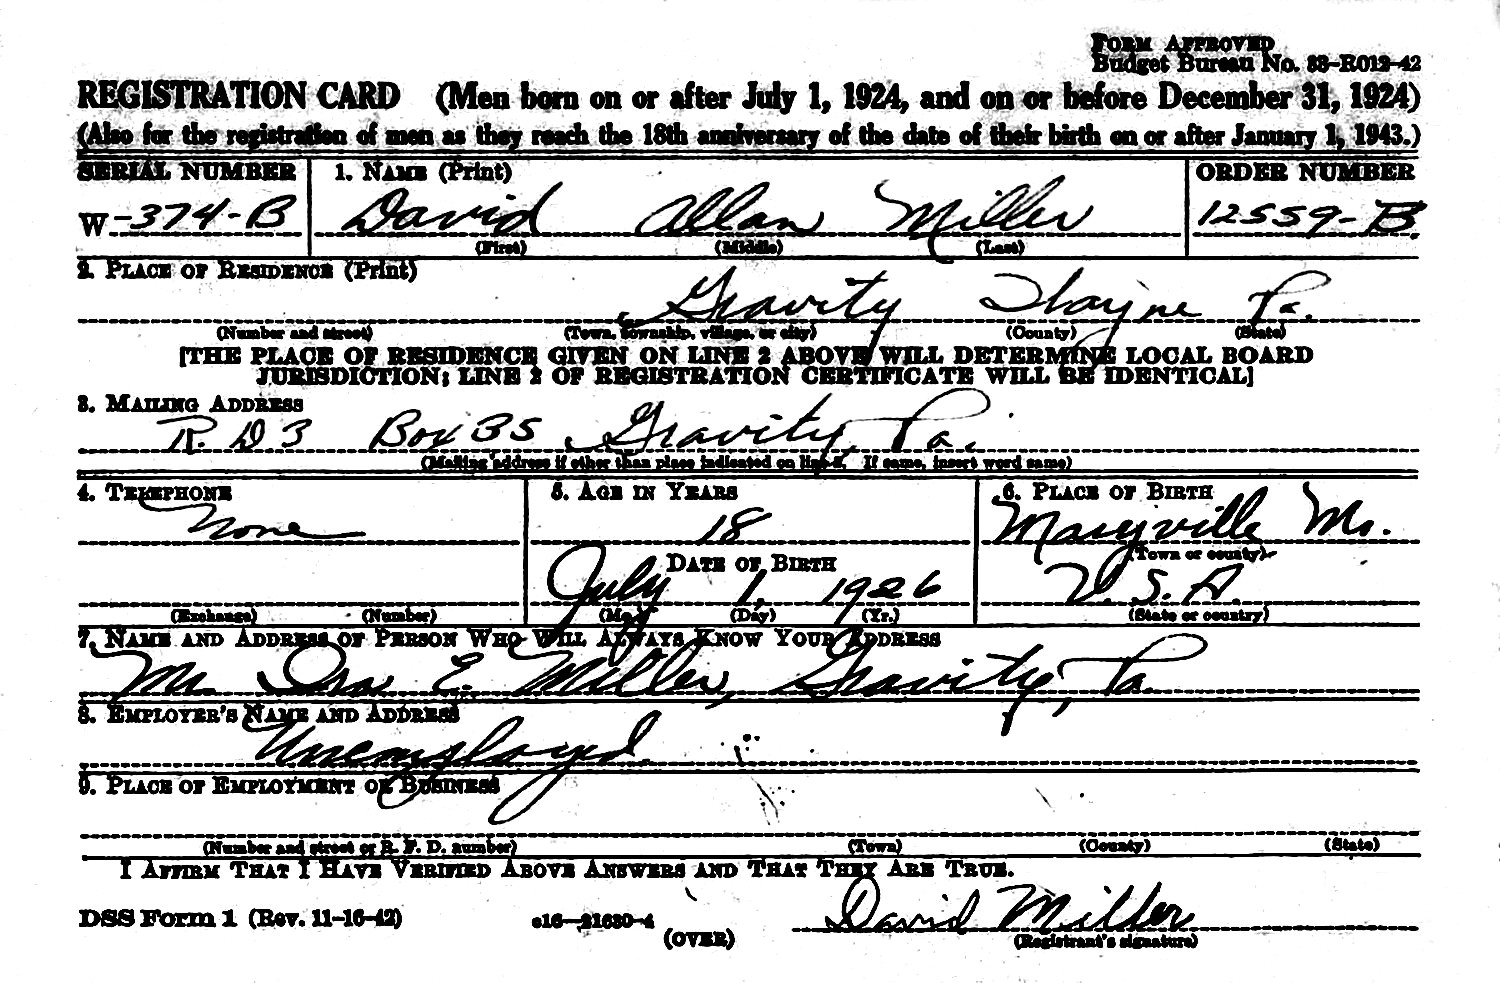 FORM APPROVED
Budget Bureau No. 33-R012-42
REGISTRATION CARD (Men born on or after July 1, 1924, and on or before December 31, 1924)
(Also for the registration of men as they reach the 18th anniversary of the date of their birth on or after January 1, 1943.)
SERIAL NUMBER 1. NAME (Print) ORDER NUMBER
W-374-B David Allan Miller 12559-B.
(First) (Middle) (Last)
2. PLACE OF RESIDENCE (Print)
Gravity Wayne Pa.
(Number and street) (Town, township, village, or city) (County) (State)
[THE PLACE OF RESIDENCE GIVEN ON LINE 2 ABOVE WILL DETERMINE LOCAL BOARD
JURISDICTION; LINE 2 OF REGISTRATION CERTIFICATE WILL BE IDENTICAL]
3. MAILING ADDRESS
R. D 3 Box 35, Gravity, Pa.
(Mailing address if other than place indicated on line 2. If same, insert word same)
4. TELEPHONE 5. AGE IN YEARS 6. PLACE OF BIRTH
None 18 Maryville Mo.
(Town or county)
DATE OF BIRTH
July 1, 1926 U.S.A.
(Exchange) (Number) (Mo.) (Day) (Yr.) (State or country)
7. NAME AND ADDRESS OF PERSON WHO WILL ALWAYS KNOW YOUR ADDRESS
Mr. Ira E. Miller, Gravity, Pa.
8. EMPLOYER'S NAME AND ADDRESS
Unemployed.
9. PLACE OF EMPLOYMENT OR BUSINESS
(Number and street or R. F. D. number) (Town) (County) (State)
I AFFIRM THAT I HAVE VERIFIED ABOVE ANSWERS AND THAT THEY ARE TRUE.
David Miller
DSS Form 1 (Rev. 11-16-42) c16-21630-4
(OVER) (Registrant's signature)